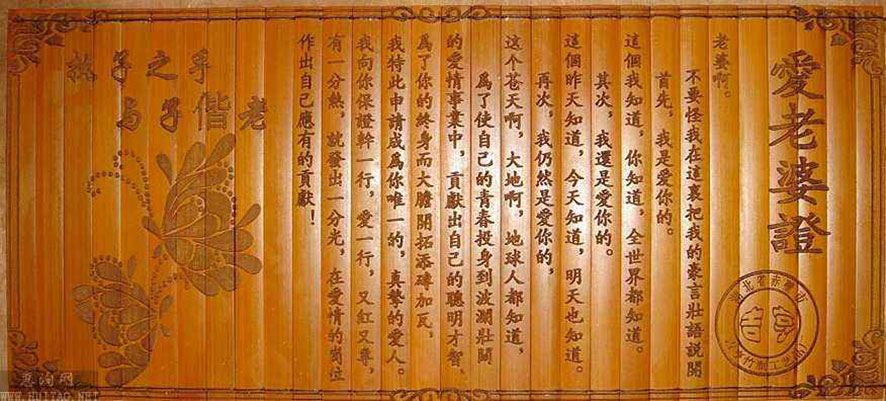 愛老婆證
老婆啊。
不要怪我在這裏把我的豪言壯語説開
首先，我是愛你的。
這個我知道，你知道，全世界都知道。
其次，我還是愛你的。
這個昨天知道，今天知道，明天也知道。
再次，我仍然是愛你的，
这个苍天啊，大地啊，地球人都知道，
爲了使自己的青春投身到波瀾壯闊
的愛情事業中，貢獻出自己的聰明才智、
爲了你的終身而大膽開拓添磚加瓦、
我特此申請成爲你唯一的，真摯的愛人。
我向你保證幹一行，愛一行，又紅又專，
有一分熱，就發出一分光，在愛情的崗位
作出自己應有的貢獻！
执子之手
与子偕老
湖北省赤壁市
惠淘网
WWW.HUITAO.NET